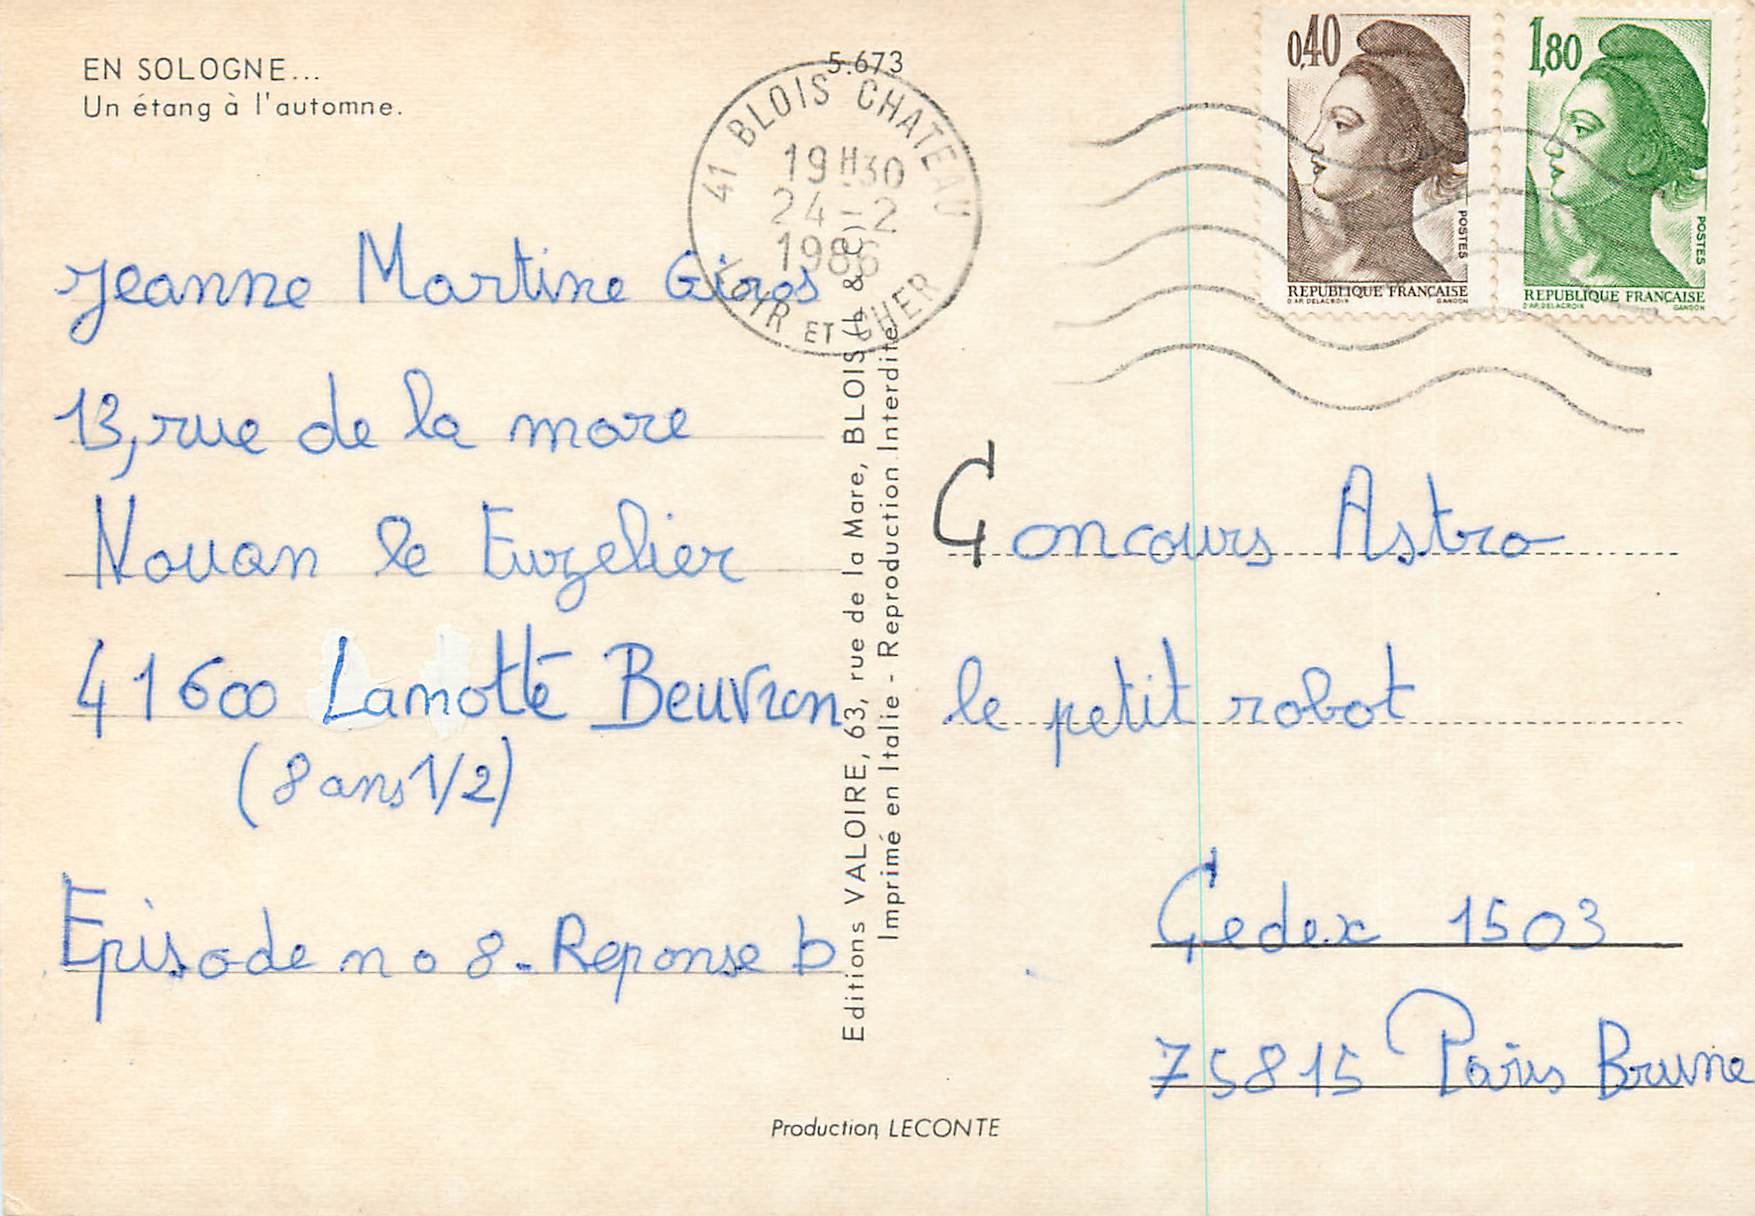 EN SOLOGNE...
Un étang à l'automne.
5.673
41 BLOIS CHATEAU
19H30
24-2
1986
LOIR ET CHER
0,40
POSTES
REPUBLIQUE FRANÇAISE
D'AP. DELACROIX GANDON
1,80
POSTES
REPUBLIQUE FRANÇAISE
D'AP. DELACROIX GANDON
Jeanne Martine Giros
13, rue de la mare
Nouan le Fuzelier
41600 Lamotte Beuvron
(8 ans 1/2)
Episode no 8 - Reponse b
Editions VALOIRE, 63, rue de la Mare, BLOIS
Imprimé en Italie - Reproduction Interdite
Concours Astro
le petit robot
Cedex 1503
75815 Paris Brune
Production LECONTE